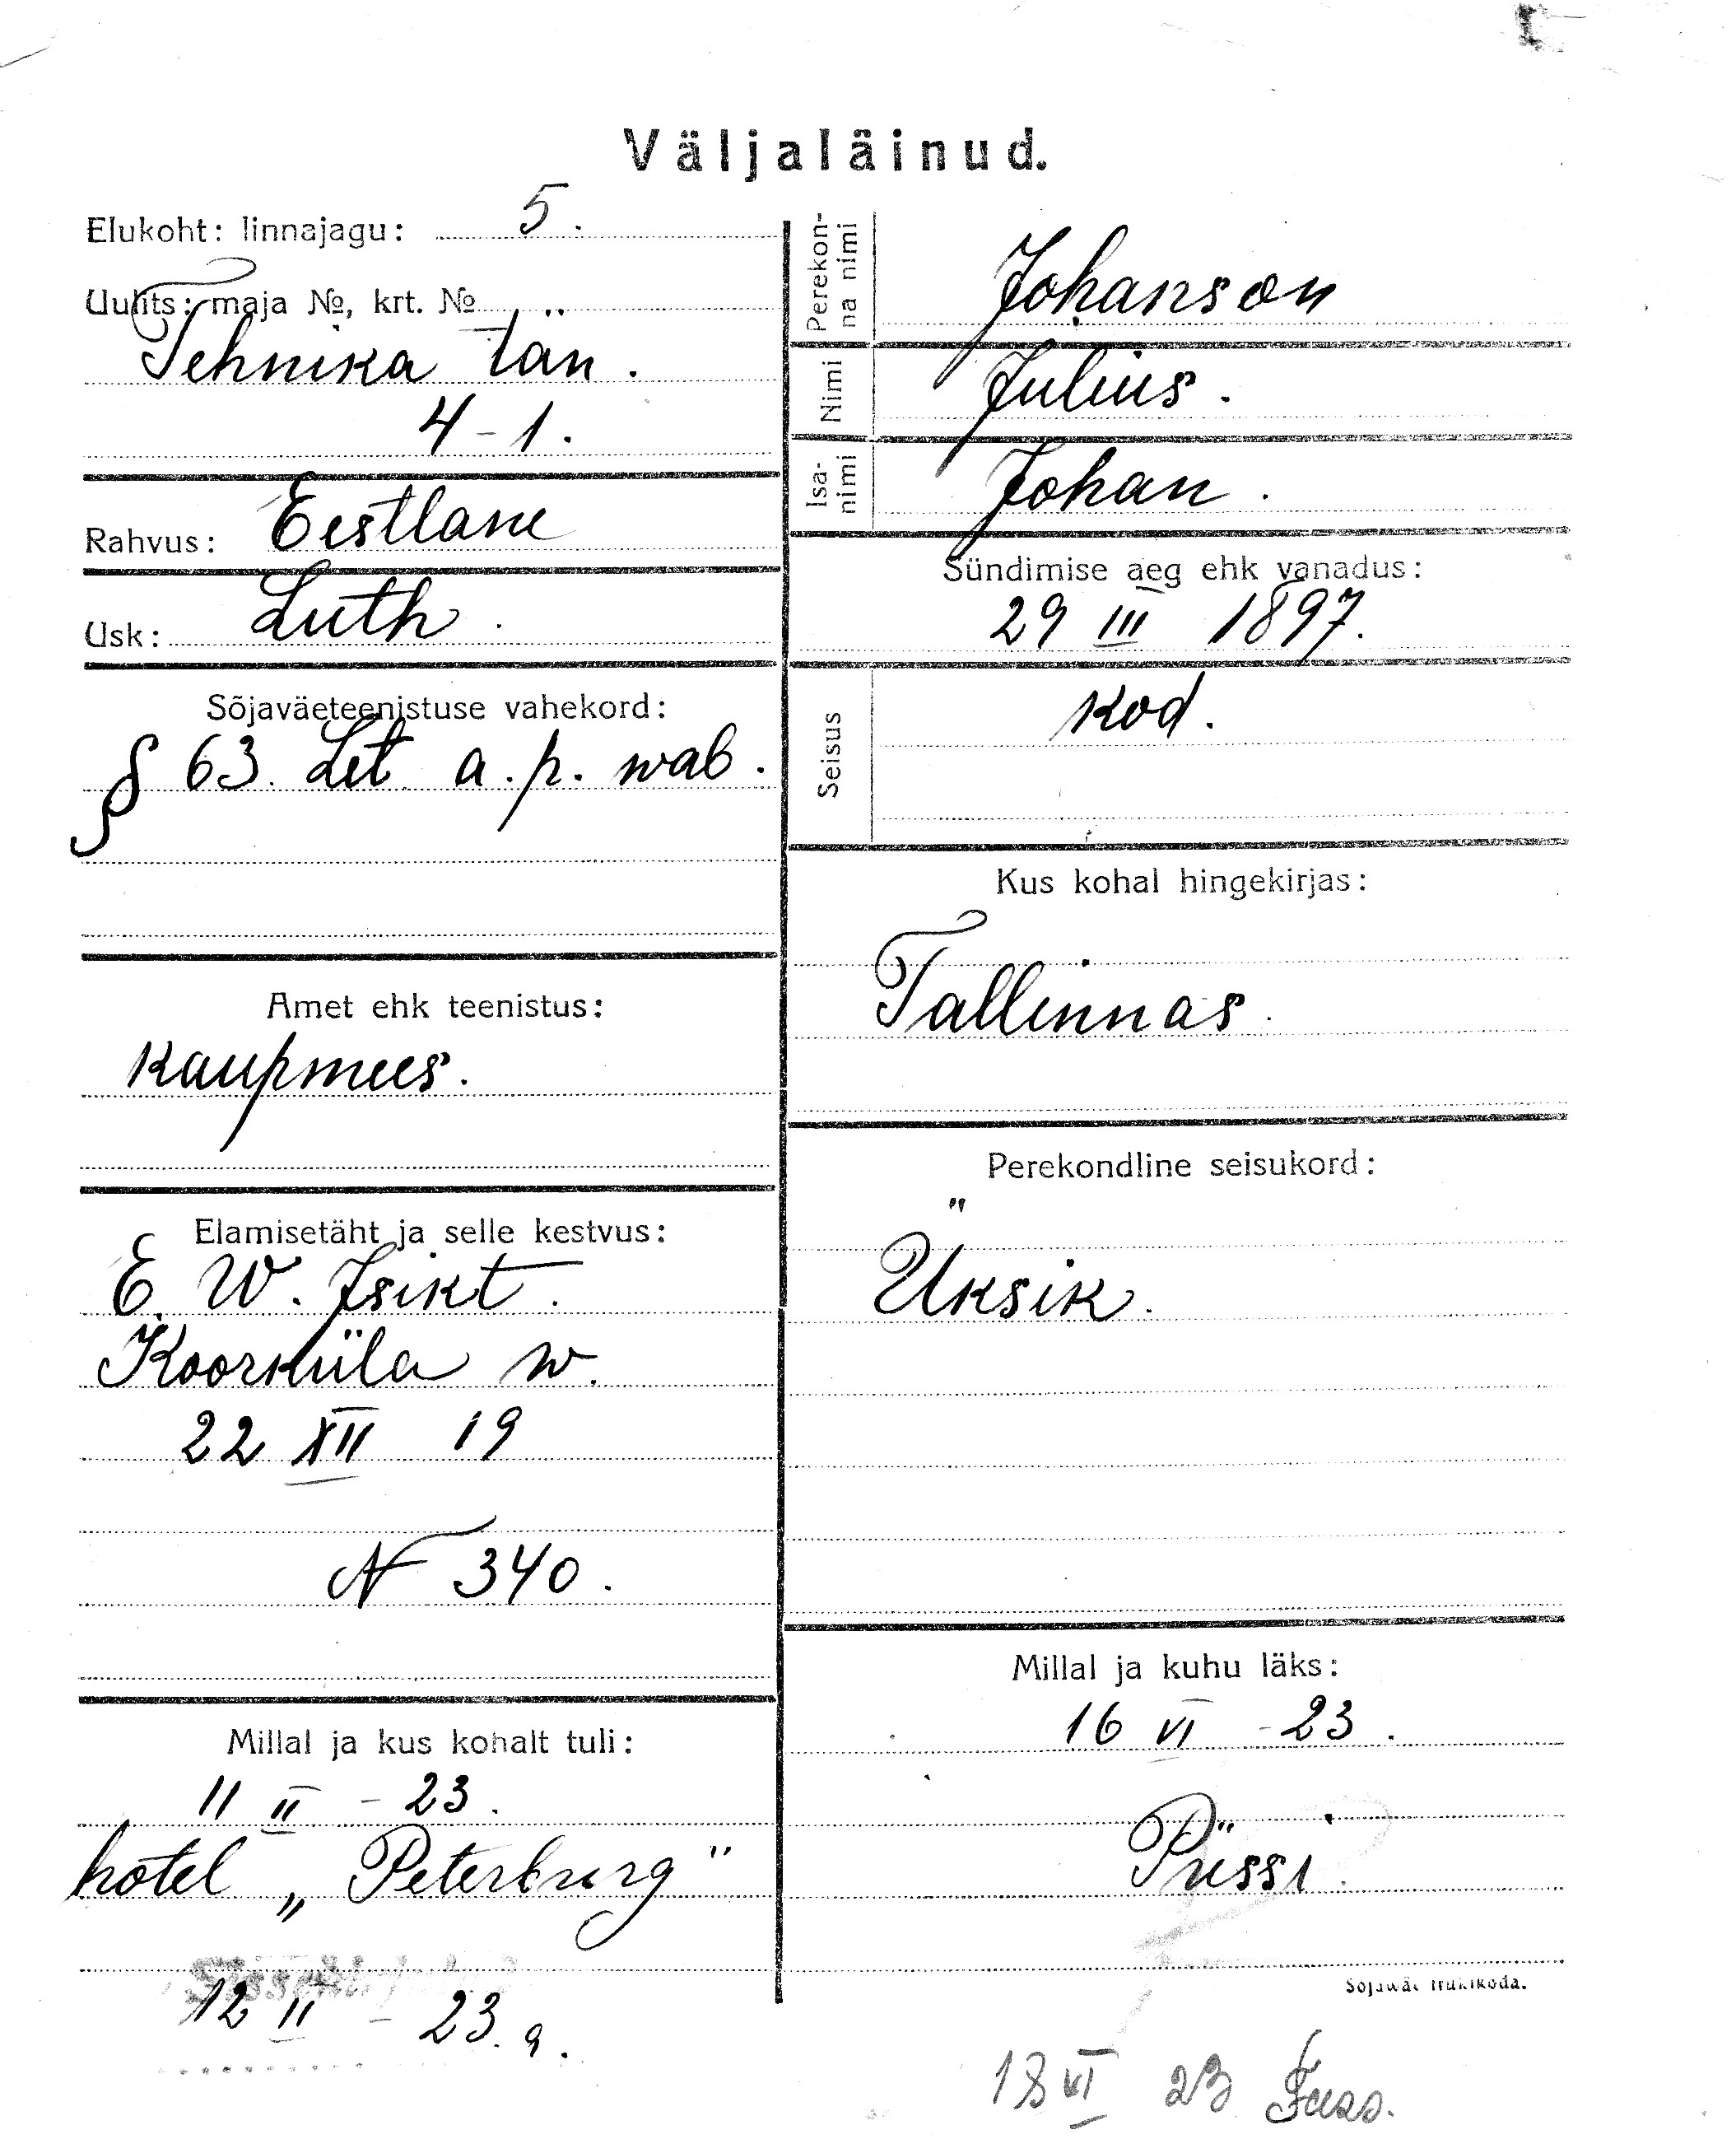 Väljaläinud.
Elukoht: linnajagu: 5.
Uulits: maja №, krt. №
Tehnika tän.
4-1.
Rahvus: Eestlane
Usk: Luth.
Sõjaväeteenistuse vahekord:
§ 63. Let a. p. wab.
Amet ehk teenistus:
kaupmees.
Elamisetäht ja selle kestvus:
E. W. Isikt.
Koorküla w.
22 XII 19
N 340.
Millal ja kus kohalt tuli:
11 II - 23.
hotel „Peterburg"
12 II - 23. a.
Perekonna nimi
Johanson
Nimi
Julius.
Isanimi
Johan.
Sündimise aeg ehk vanadus:
29 III 1897.
Seisus
kod.
Kus kohal hingekirjas:
Tallinnas.
Perekondline seisukord:
Üksik.
Millal ja kuhu läks:
16 VI - 23.
Püssi.
Sõjawäe trükikoda.
18 VI 23